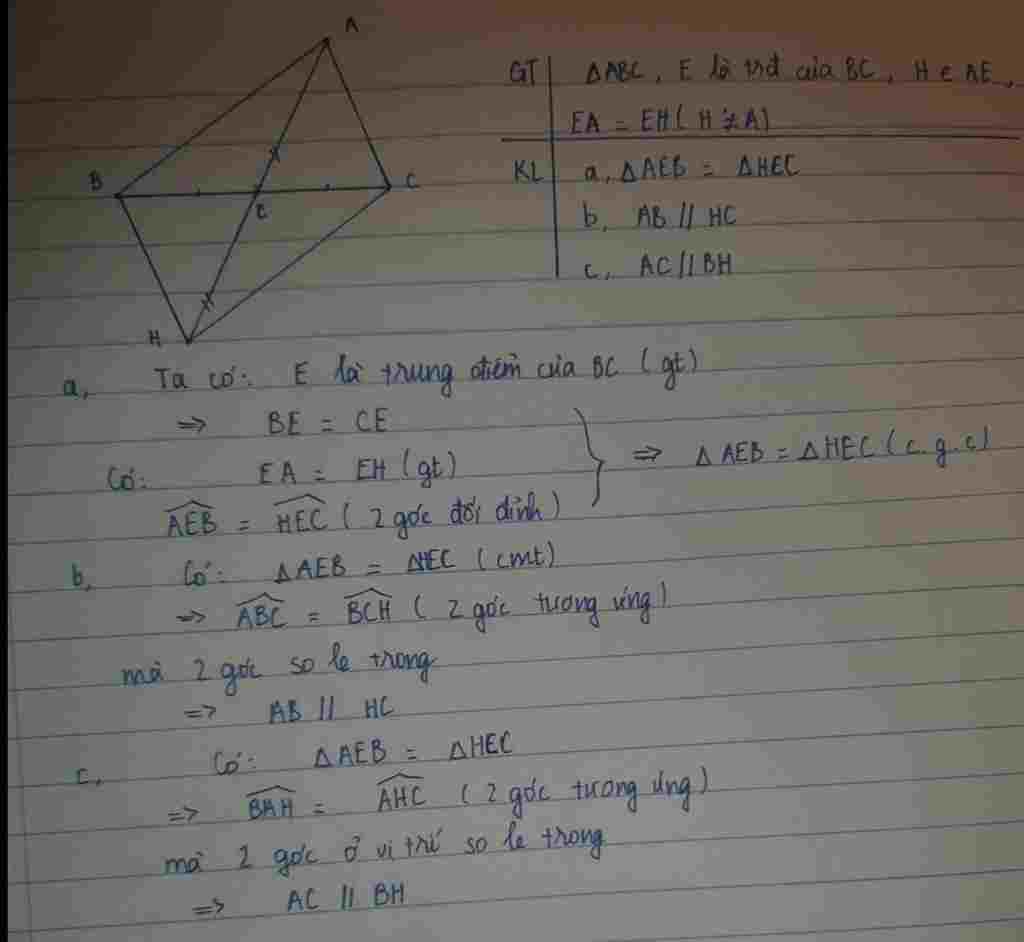 A
B
C
E
H
GT ΔABC, E là trđ của BC, H ∈ AE,
EA = EH (H ≠ A)
KL a, ΔAEB = ΔHEC
b, AB // HC
c, AC // BH
a, Ta có: E là trung điểm của BC (gt)
=> BE = CE
Có: EA = EH (gt)
=> ΔAEB = ΔHEC (c.g.c)
AEB = HEC (2 góc đối đỉnh)
b, Có: ΔAEB = ΔHEC (cmt)
=> ABC = BCH (2 góc tương ứng)
mà 2 góc so le trong
=> AB // HC
c, Có: ΔAEB = ΔHEC
=> BAH = AHC (2 góc tương ứng)
mà 2 góc ở vị trí so le trong
=> AC // BH